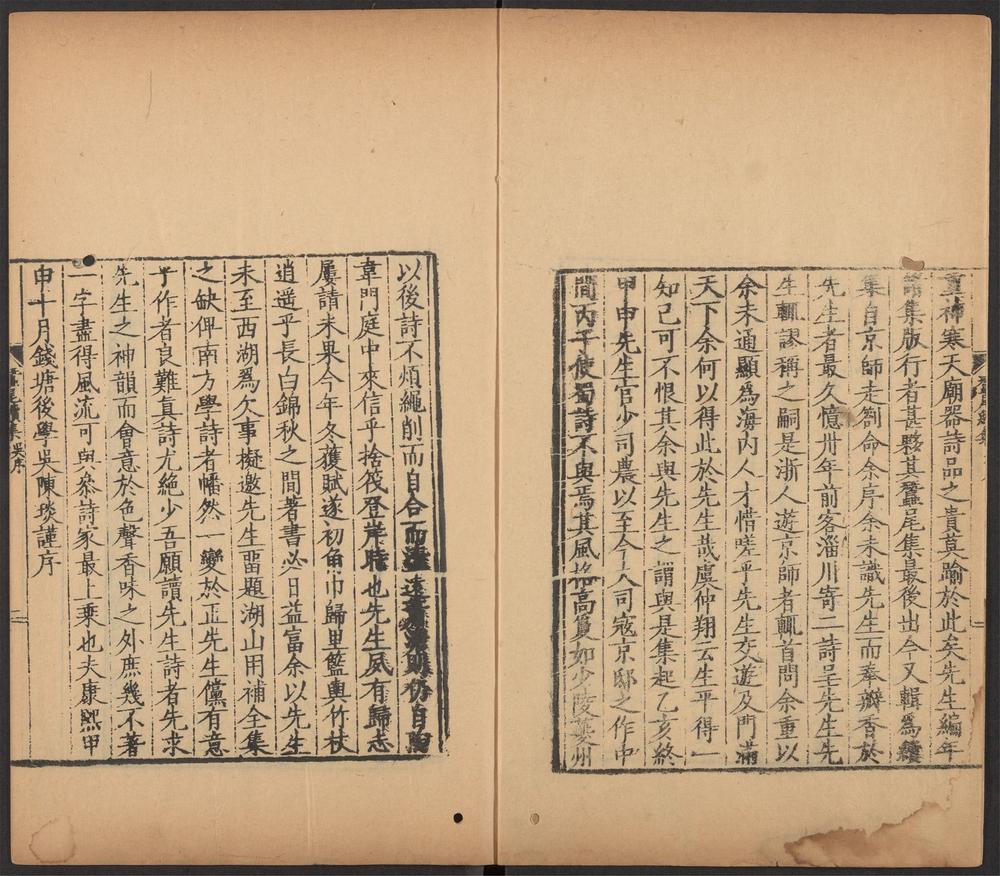 重神寒天廟器詩品之貴莫踰於此矣先生編年
詩集版行者甚夥其蠶尾集最後出今又輯爲續
集自京師走劄命余序余未識先生而奉瓣香於
先生者最久憶卅年前客淄川寄二詩呈先生先
生輒謬稱之嗣是浙人遊京師者輒首問余重以
余未通顯爲海内人才惜嗟乎先生交遊及門滿
天下余何以得此於先生哉虞仲翔云生平得一
知己可不恨其余與先生之謂與是集起乙亥終
甲申先生官少司農以至今大司寇京邸之作中
間丙子使蜀詩不與焉其風格高夐如少陵夔州
以後詩不煩繩削而自合而 遠 自陶
韋門庭中來信乎捨筏登岸時也先生夙有歸志
屢請未果今年冬獲賦遂初角巾歸里籃輿竹杖
逍遥乎長白錦秋之間著書必日益富余以先生
未至西湖爲欠事擬邀先生畱題湖山用補全集
之缺俾南方學詩者幡然一變於正先生儻有意
乎作者良難真詩尤絶少吾願讀先生詩者先求
先生之神韻而會意於色聲香味之外庶幾不著
一字盡得風流可與叅詩家最上乗也夫康熙甲
申十月錢塘後學吳陳琰謹序
蠶尾續集 吳序
二